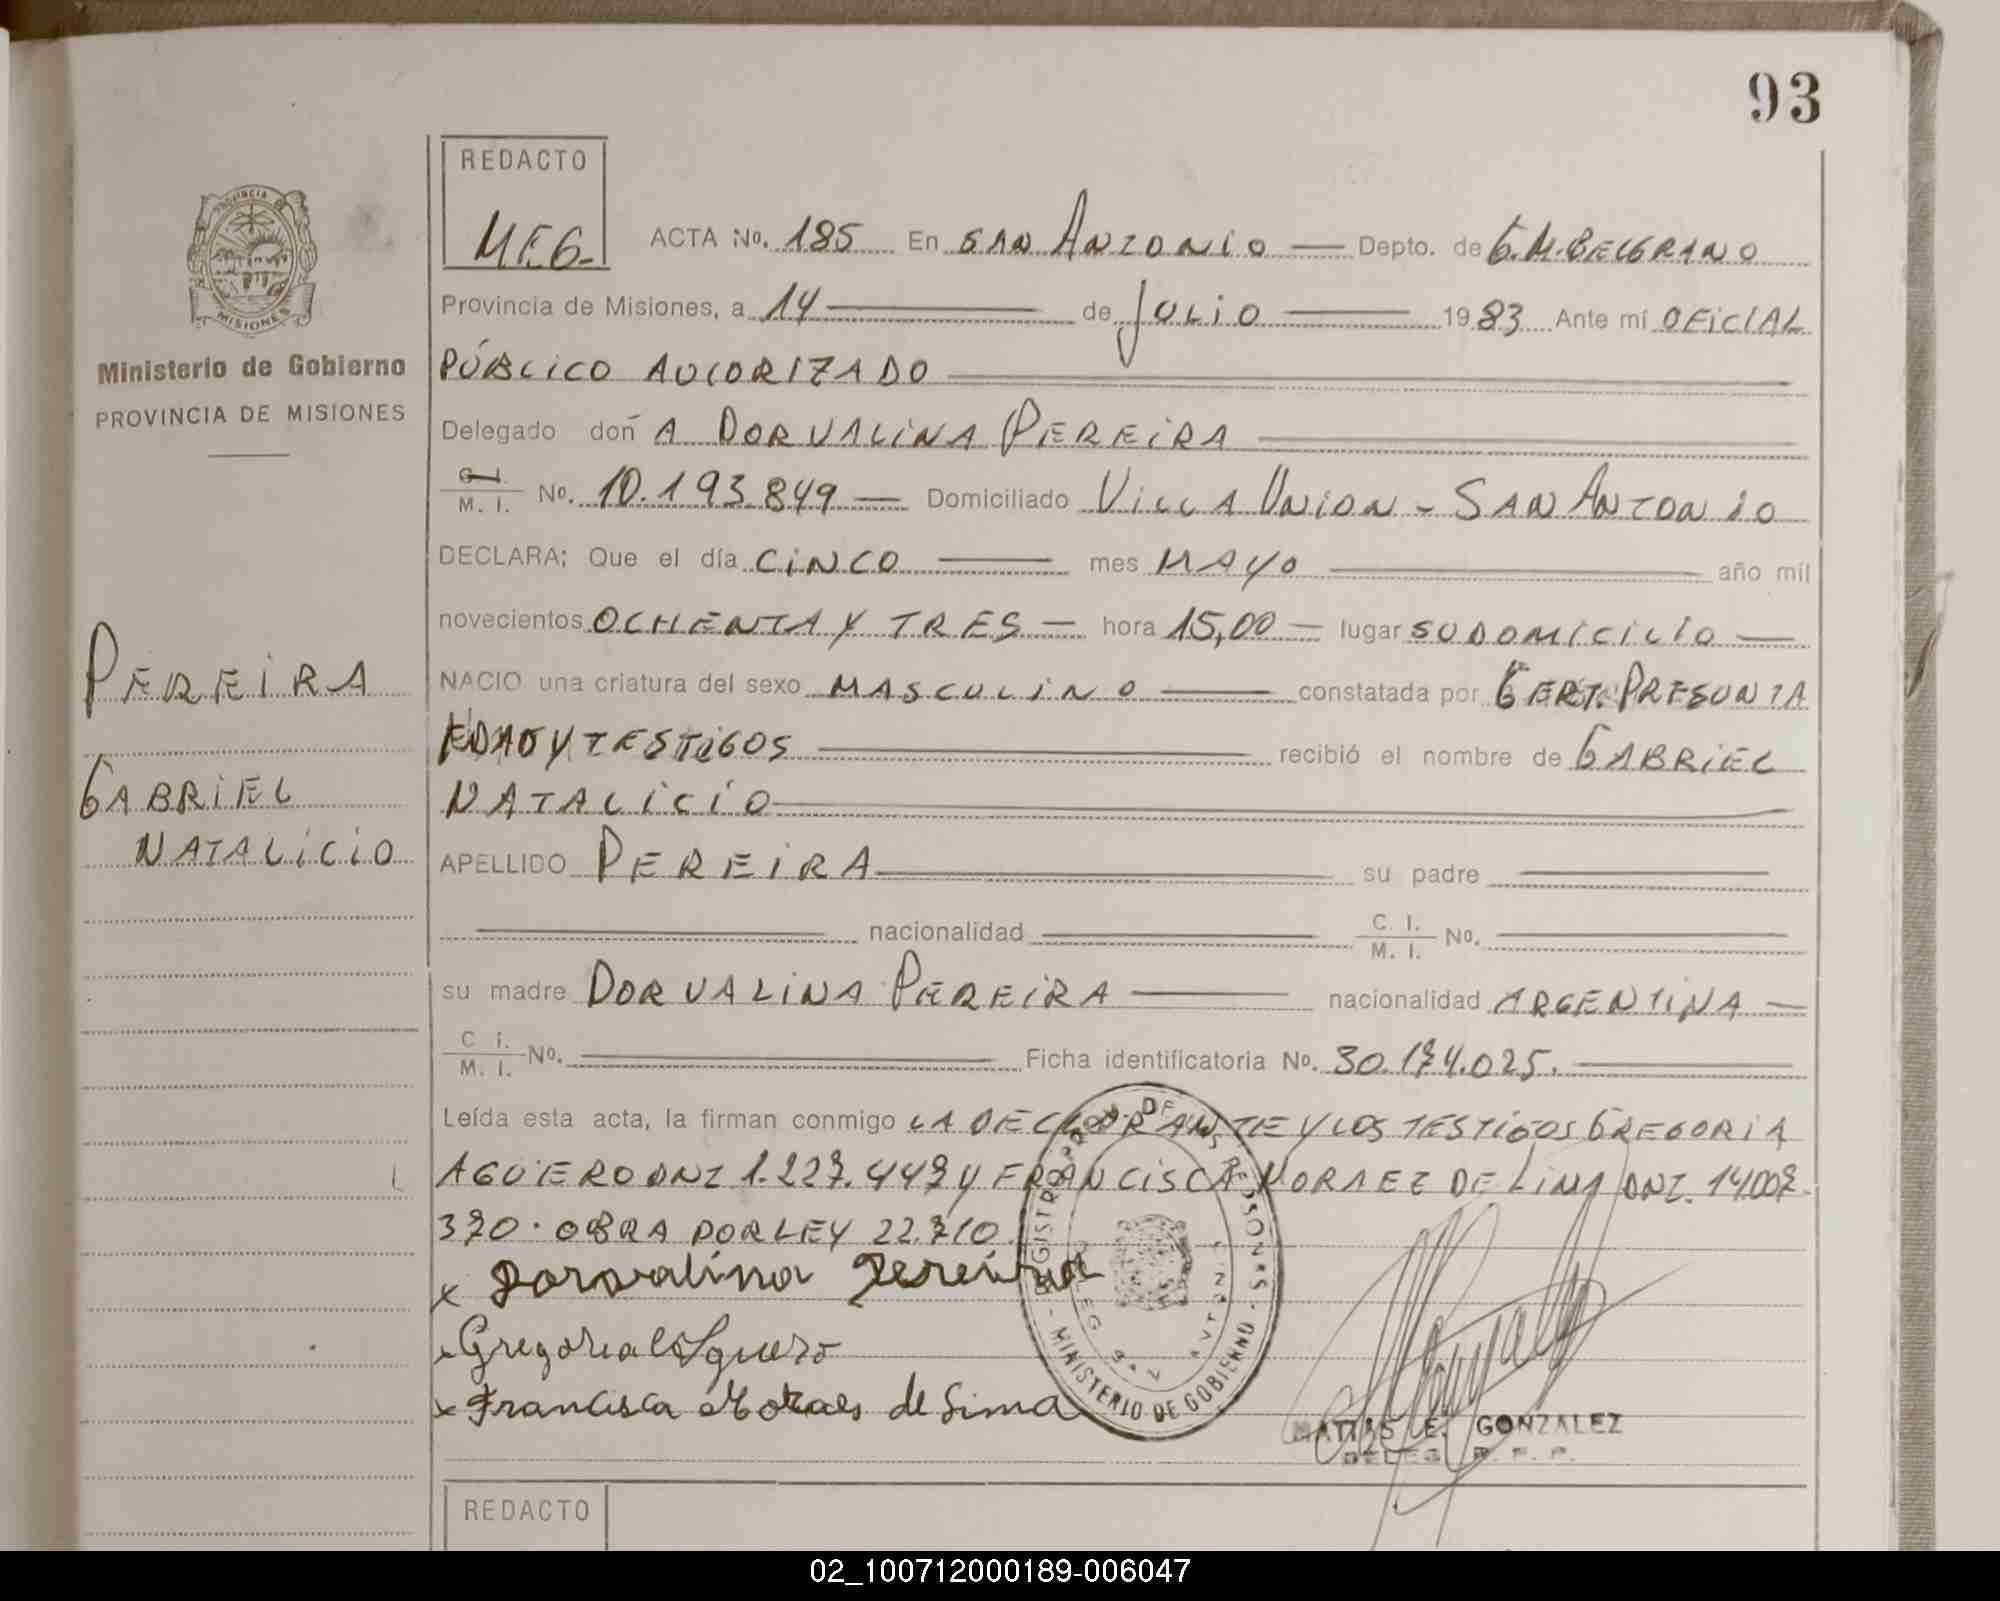 93
REDACTO
M.E.G.
ACTA No. 185 En SAN ANTONIO Depto. de G.M. BELGRANO
Provincia de Misiones, a 14 de JULIO 1983 Ante mí OFICIAL
PÚBLICO AUTORIZADO
Delegado doñA DORVALINA PEREIRA
C. I. / M. I. No. 10.193.849 Domiciliado VILLA UNION - SAN ANTONIO
DECLARA: Que el día CINCO mes MAYO año mil
novecientos OCHENTA Y TRES hora 15,00 lugar SU DOMICILIO
NACIO una criatura del sexo MASCULINO constatada por CERT. PRESUNTA
EDAD Y TESTIGOS recibió el nombre de GABRIEL
NATALICIO
APELLIDO PEREIRA su padre
nacionalidad C. I. / M. I. No.
su madre DORVALINA PEREIRA nacionalidad ARGENTINA
C. I. / M. I. No. Ficha identificatoria No. 30.174.025.
Leída esta acta, la firman conmigo LA DECLARANTE Y LOS TESTIGOS GREGORIA
AGÜERO DNI 1.227.447 Y FRANCISCA MORAEZ DE LIMA DNI. 14.007.
370. OBRA POR LEY 22.710.
x Dorvalina Pereira
x Gregoria Aguero
x Francisca Moraes de Lima
REGISTRO PROV. DE LAS PERSONAS
MINISTERIO DE GOBIERNO
MATIAS E. GONZALEZ
DELEG. R. P. P.
PROVINCIA
MISIONES
Ministerio de Gobierno
PROVINCIA DE MISIONES
PEREIRA
GABRIEL
NATALICIO
REDACTO
02_100712000189-006047